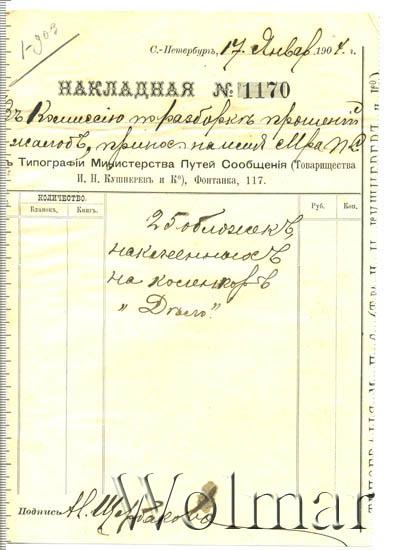 1-903
С.-Петербургъ, 17. Январ. 1904. г.
НАКЛАДНАЯ № 1170
Въ Комиссію по разборкѣ прошеній
жалобъ, принос. на имя М-ра П. С
ъ Типографіи Министерства Путей Сообщенія (Товарищества
И. Н. Кушнеревъ и К°), Фонтанка, 117.
КОЛИЧЕСТВО.
Бланокъ. Книгъ. Руб. Коп.
25 обложекъ
наклеенныхъ
на коленкоръ
„Дѣло".
Подпись А. Щербаковъ
Wolmar